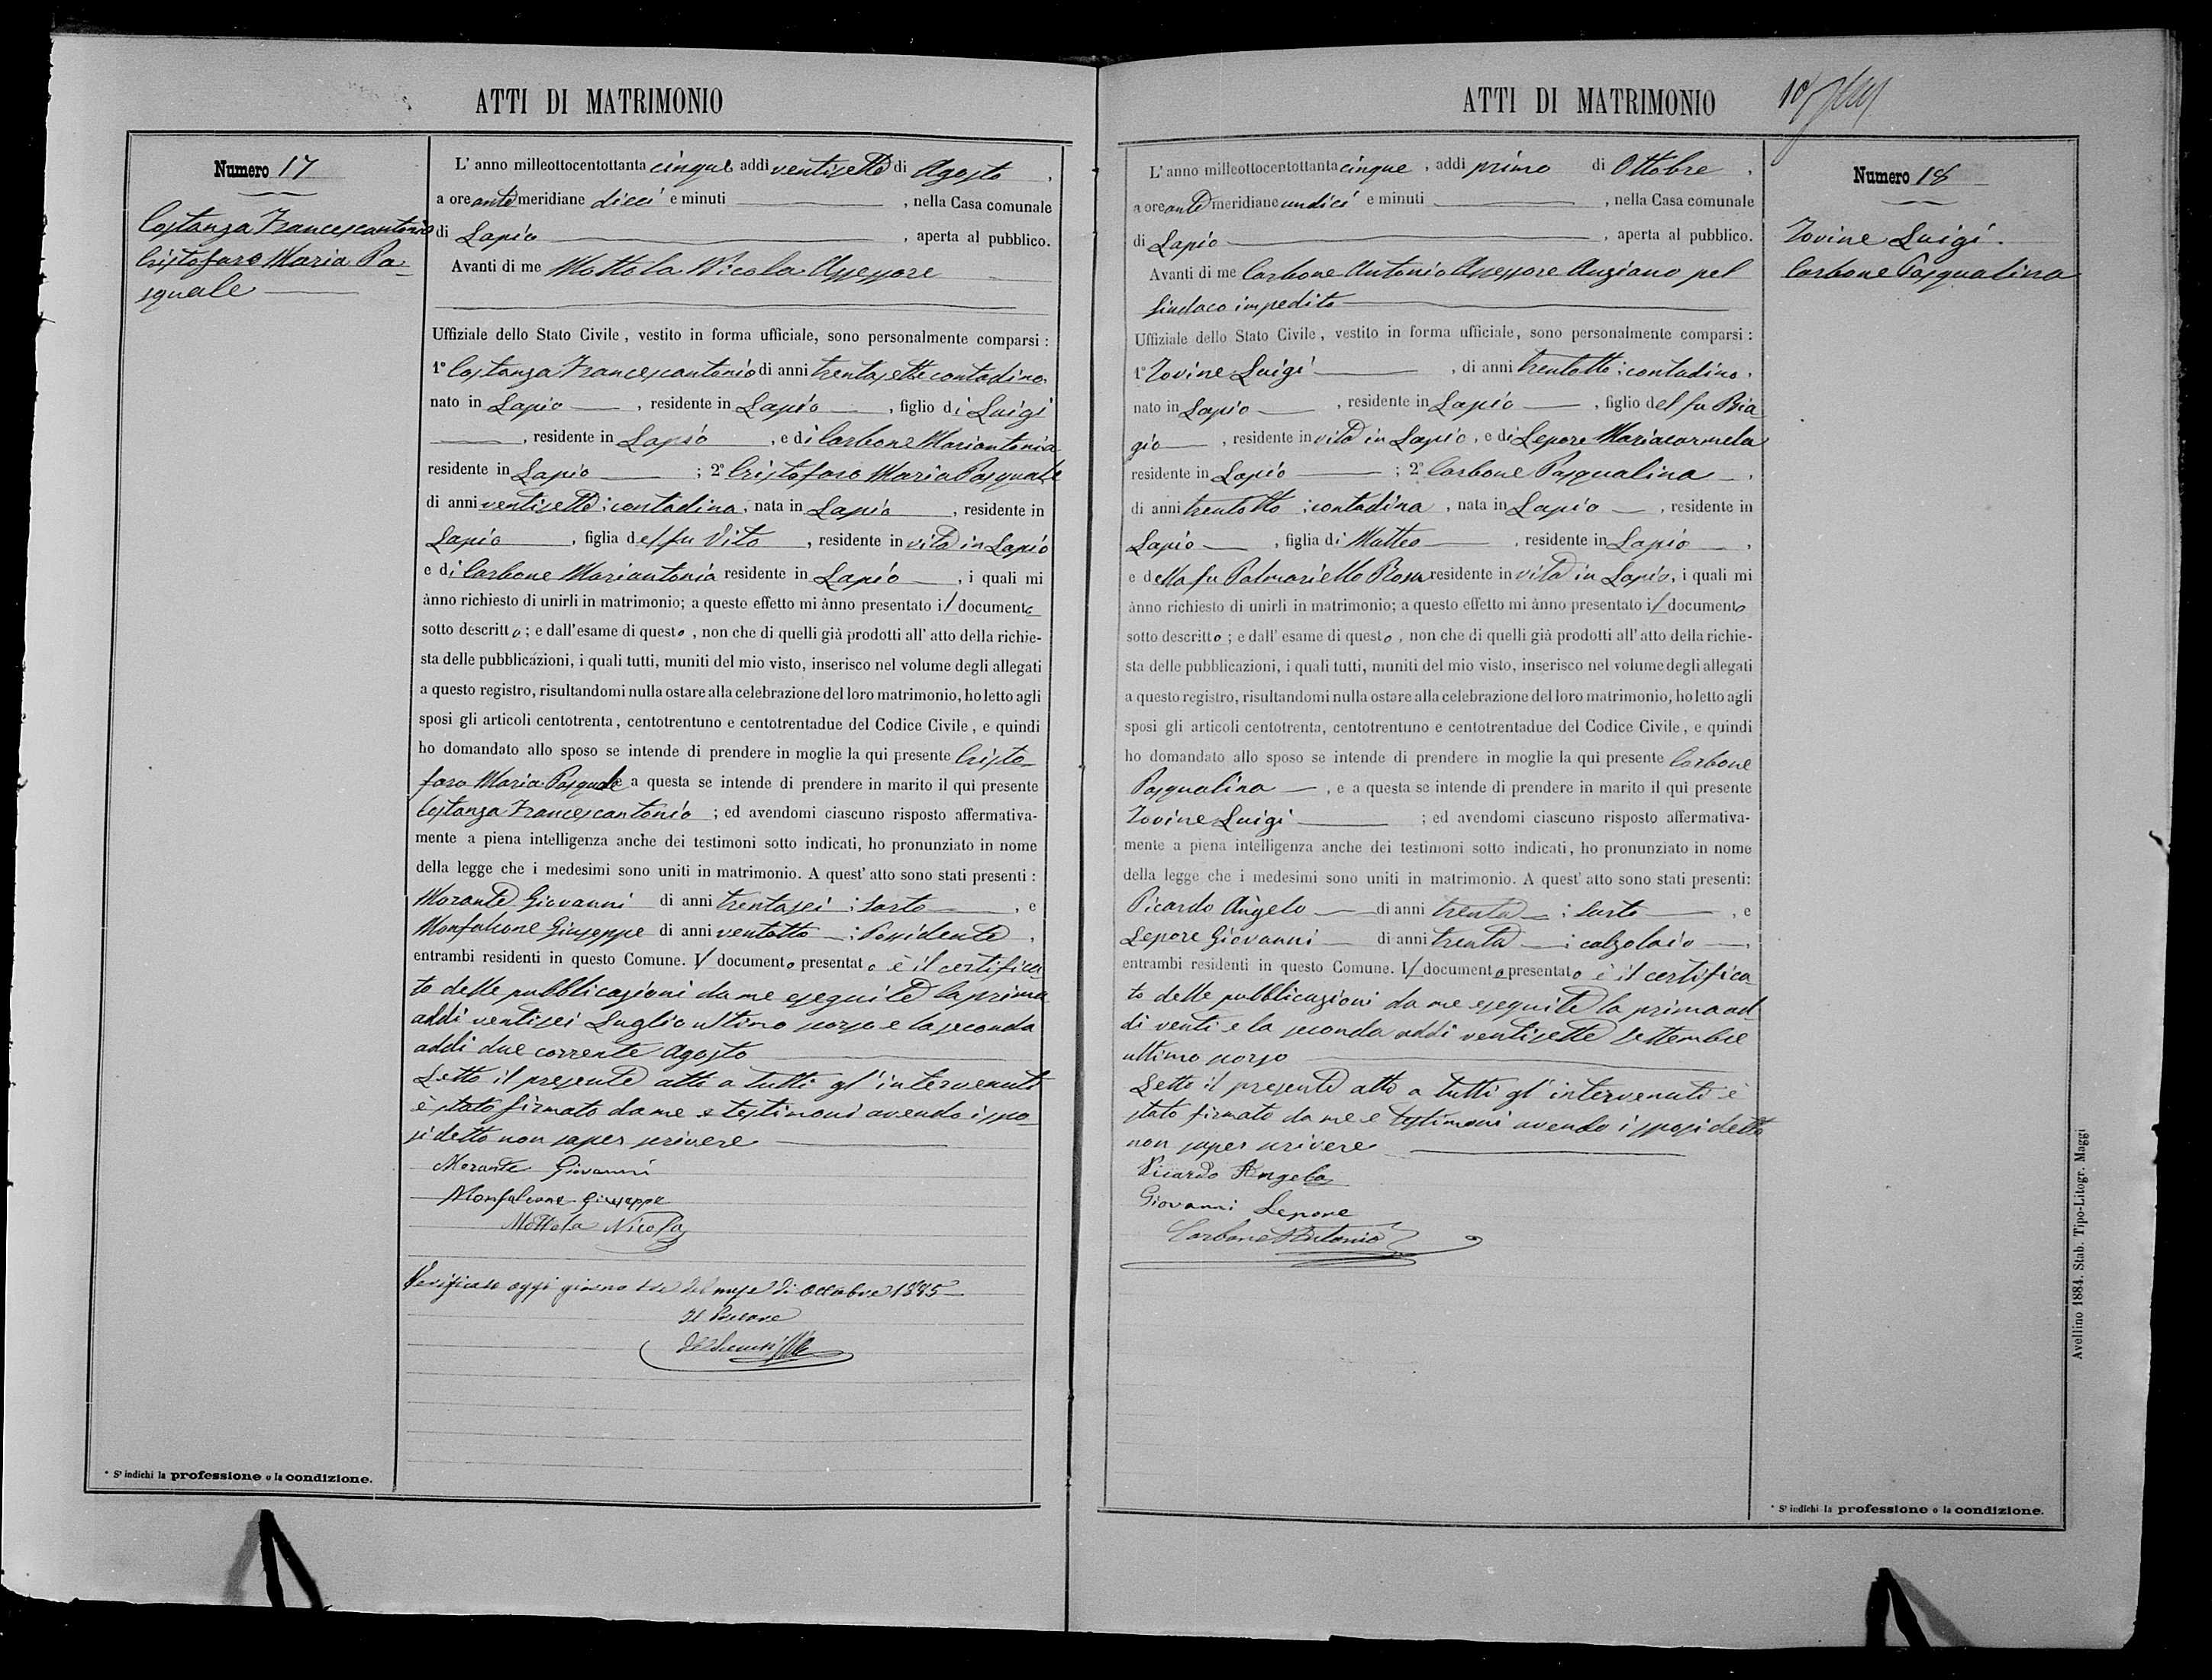 ATTI DI MATRIMONIO
Numero 17
Costanza Francescantonio
Cristofaro Maria Pa-
squale
L' anno milleottocentottanta cinque addì ventisette di Agosto ,
a ore ante meridiane dieci e minuti , nella Casa comunale
di Lapio , aperta al pubblico.
Avanti di me Mottola Nicola Assessore
Uffiziale dello Stato Civile, vestito in forma ufficiale, sono personalmente comparsi :
1° Costanza Francescantonio di anni trentasette contadino,
nato in Lapio , residente in Lapio , figlio di Luigi
, residente in Lapio , e di Carbone Mariantonia
residente in Lapio ; 2° Cristofaro Maria Pasquale
di anni ventisette ; contadina , nata in Lapio , residente in
Lapio , figlia del fu Vito , residente in vita in Lapio
e di Carbone Mariantonia residente in Lapio , i quali mi
ànno richiesto di unirli in matrimonio; a questo effetto mi ànno presentato il documento
sotto descritto ; e dall' esame di questo , non che di quelli già prodotti all' atto della richie-
sta delle pubblicazioni, i quali tutti, muniti del mio visto, inserisco nel volume degli allegati
a questo registro, risultandomi nulla ostare alla celebrazione del loro matrimonio, ho letto agli
sposi gli articoli centotrenta, centotrentuno e centotrentadue del Codice Civile, e quindi
ho domandato allo sposo se intende di prendere in moglie la qui presente Cristo-
faro Maria Pasquale e a questa se intende di prendere in marito il qui presente
Costanza Francescantonio ; ed avendomi ciascuno risposto affermativa-
mente a piena intelligenza anche dei testimoni sotto indicati, ho pronunziato in nome
della legge che i medesimi sono uniti in matrimonio. A quest' atto sono stati presenti :
Morante Giovanni di anni trentasei ; sarto , e
Monfalcone Giuseppe di anni ventotto ; Possidente ,
entrambi residenti in questo Comune. Il documento presentato è il certifica-
to delle pubblicazioni da me eseguite la prima
addì ventisei Luglio ultimo scorso e la seconda
addì due corrente Agosto
Letto il presente atto a tutti gl' intervenuti
è stato firmato da me e testimoni avendo i spo-
si detto non saper scrivere
Morante Giovanni
Monfalcone Giuseppe
Mottola Nicola
Verificato oggi giorno tre del mese di Ottobre 1885
Il Pretore
* S' indichi la professione o la condizione.
ATTI DI MATRIMONIO
L' anno milleottocentottanta cinque , addì primo di Ottobre ,
a ore ante meridiane undici e minuti , nella Casa comunale
di Lapio , aperta al pubblico.
Avanti di me Carbone Antonio Assessore Anziano pel
Sindaco impedito
Uffiziale dello Stato Civile, vestito in forma ufficiale, sono personalmente comparsi :
1° Iovine Luigi , di anni trentotto ; contadino ,
nato in Lapio , residente in Lapio , figlio del fu Bia-
gio , residente in vita in Lapio , e di Lepore Mariacarmela
residente in Lapio ; 2° Carbone Pasqualina ,
di anni trentotto ; contadina , nata in Lapio , residente in
Lapio , figlia di Matteo , residente in Lapio ,
e della fu Palmariello Rosa residente in vita in Lapio , i quali mi
ànno richiesto di unirli in matrimonio; a questo effetto mi ànno presentato il documento
sotto descritto ; e dall' esame di questo , non che di quelli già prodotti all' atto della richie-
sta delle pubblicazioni, i quali tutti, muniti del mio visto, inserisco nel volume degli allegati
a questo registro, risultandomi nulla ostare alla celebrazione del loro matrimonio, ho letto agli
sposi gli articoli centotrenta, centotrentuno e centotrentadue del Codice Civile, e quindi
ho domandato allo sposo se intende di prendere in moglie la qui presente Carbone
Pasqualina , e a questa se intende di prendere in marito il qui presente
Iovine Luigi ; ed avendomi ciascuno risposto affermativa-
mente a piena intelligenza anche dei testimoni sotto indicati, ho pronunziato in nome
della legge che i medesimi sono uniti in matrimonio. A quest' atto sono stati presenti:
Picardo Angelo di anni trenta ; sarto , e
Lepore Giovanni di anni trenta ; calzolaio ,
entrambi residenti in questo Comune. Il documento presentato è il certifica-
to delle pubblicazioni da me eseguite la prima ad-
dì venti e la seconda addì ventisette Settembre
ultimo scorso
Letto il presente atto a tutti gl' intervenuti è
stato firmato da me e testimoni avendo i sposi detto
non saper scrivere
Picardo Angelo
Giovanni Lepore
Carbone Antonio
Numero 18
Iovine Luigi
Carbone Pasqualina
* S' indichi la professione o la condizione.
Avellino 1884. Stab. Tipo-Litogr. Maggi